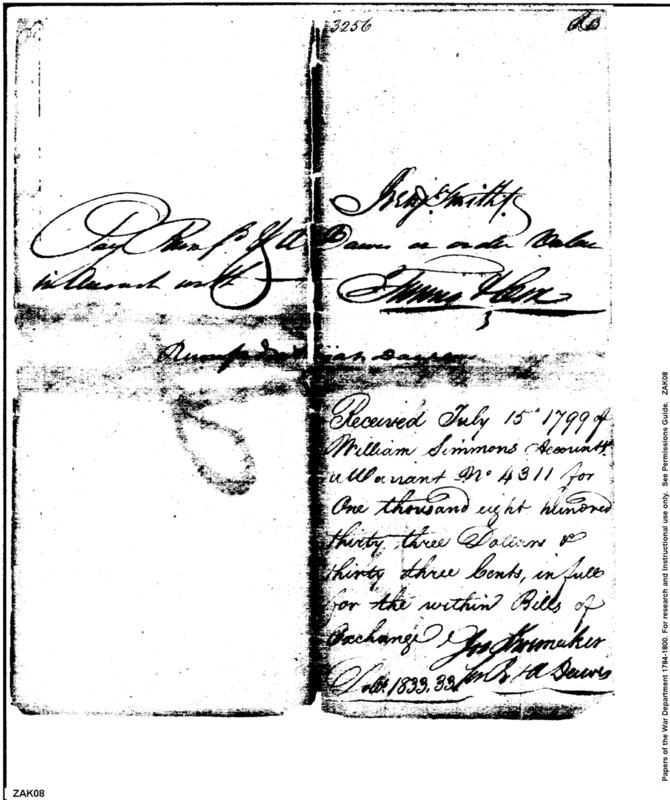 3256
Benj. Smith
Pay Rumf & A Dawes or order Value
in Account with
Received July 15th 1799 of
William Simmons Accountt
a Warrant No 4311 for
One thousand eight hundred
thirty three Dollars &
thirty three Cents, in full
for the within Bills of
Exchange
Jos Shumaker
Dolls 1833.33 for R & A Dawes
ZAK08
Papers of the War Department 1784-1800. For research and Instructional use only. See Permissions Guide. ZAK08